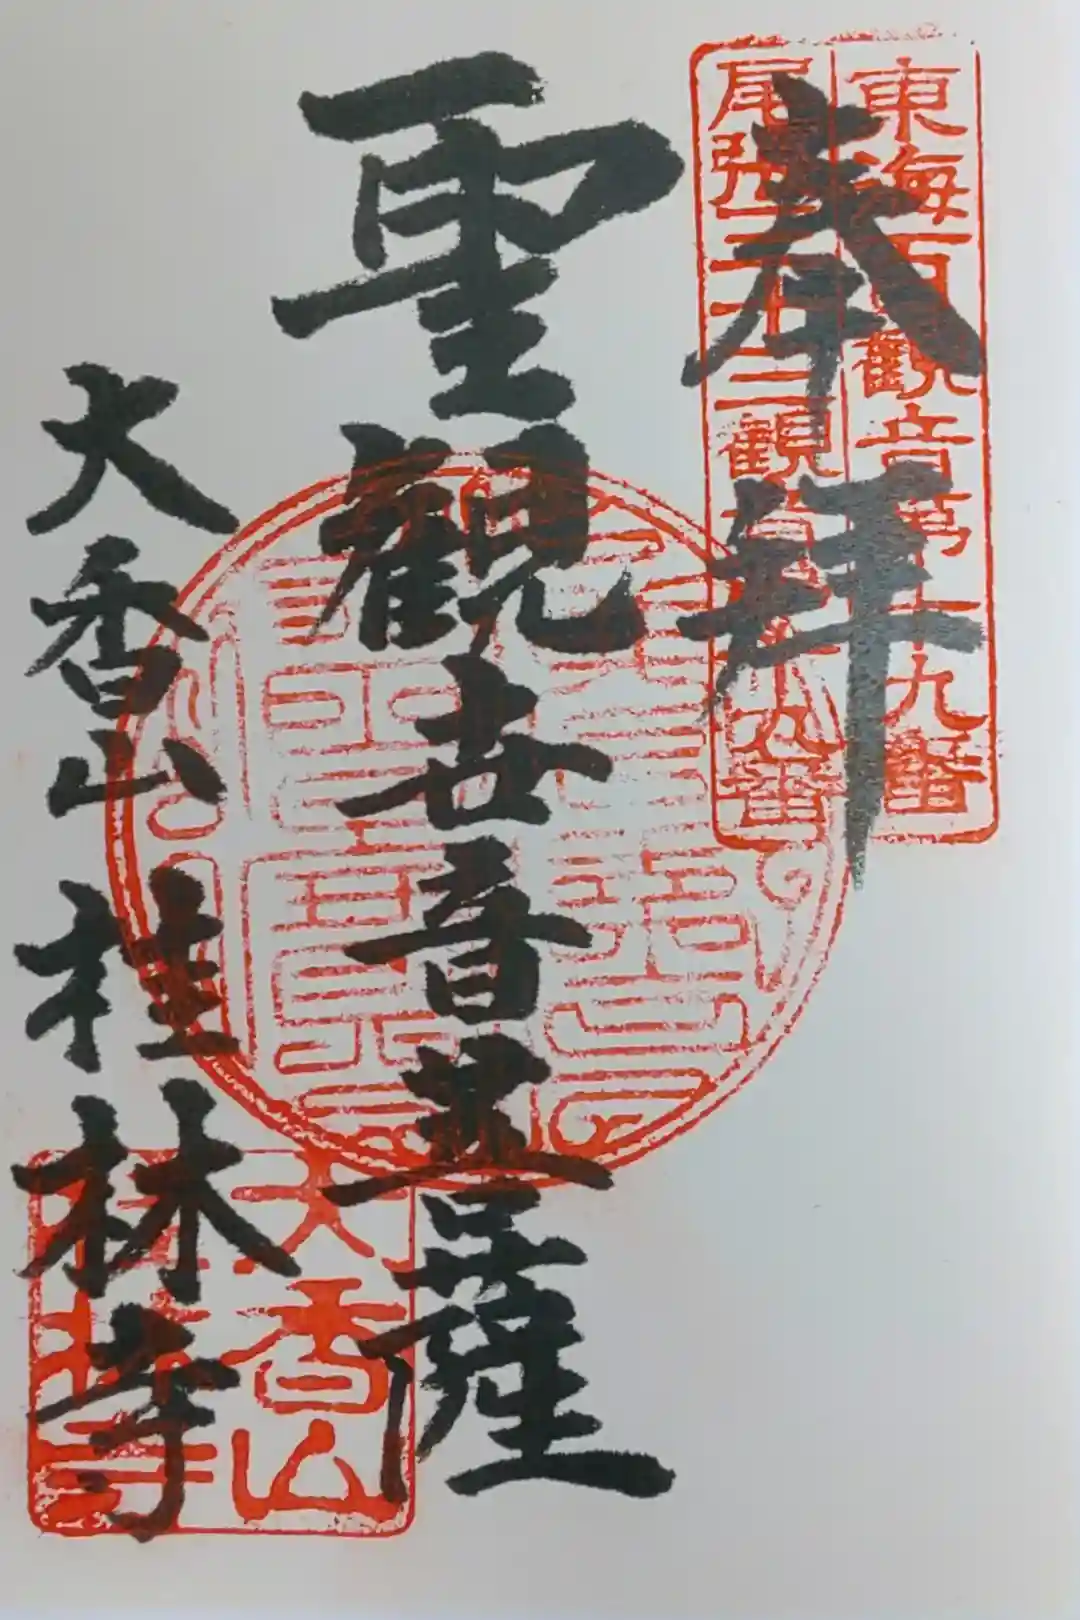 東海百観音第十九番
尾張三十三観音第十九番
奉拝
聖観世音菩薩
大香山桂林寺
大香山
桂林寺